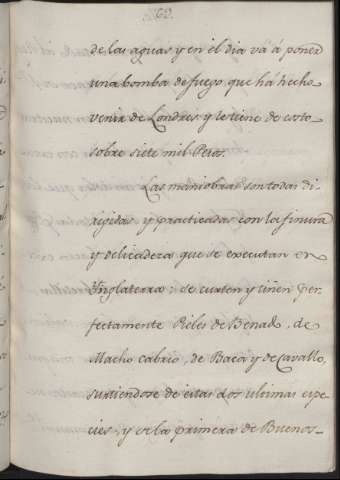 60.
de las aguas y en el dia vá á poner
una bomba de fuego que há hecho
venir de Londres y le tiene de costo
sobre siete mil Pesos.
Las maniobras son todas di-
rigidas y practicadas con la finura
y delicadeza que se executan en
Ynglaterra: se curten y tiñen per-
fectamente Pieles de Benado, de
Macho cabrio, de Baca y de Cavallo,
surtiendose de estas dos ultimas espe-
cies, y de la primera de Buenos-